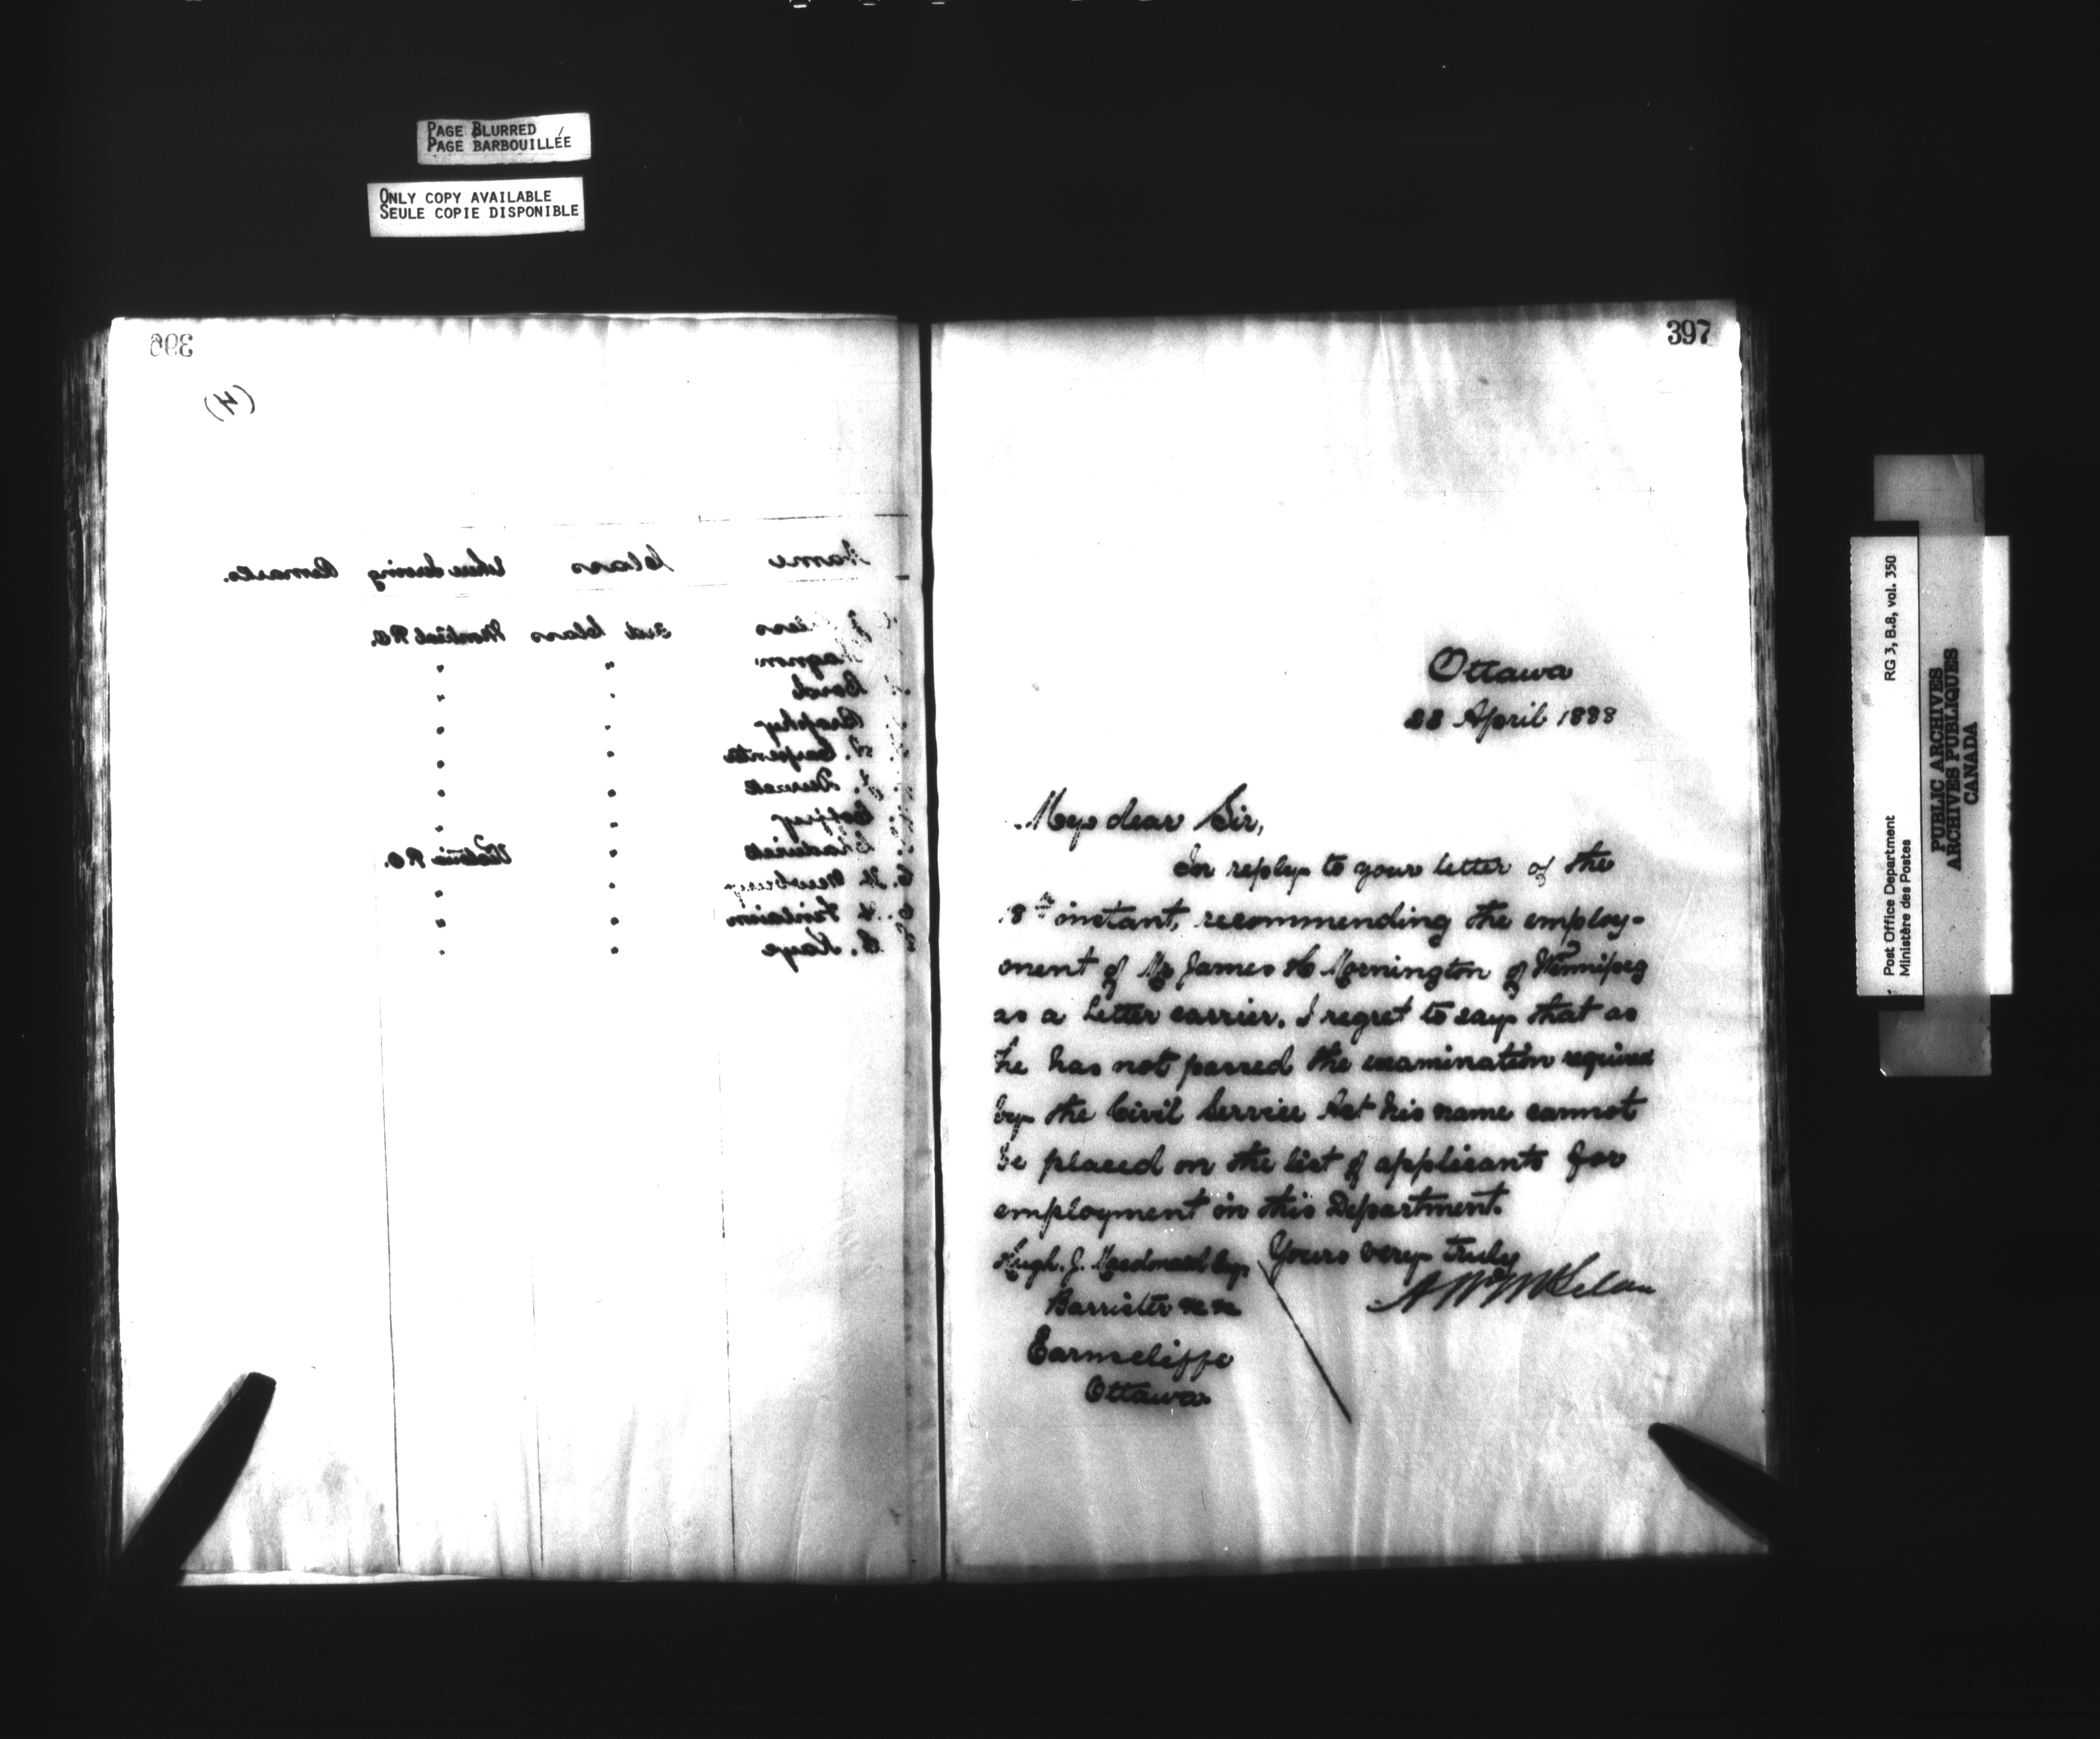 PAGE BLURRED
PAGE BARBOUILLÉE
ONLY COPY AVAILABLE
SEULE COPIE DISPONIBLE
396
(4)
Name Class Where Serving Remarks.
3rd Class Montreal P.O.
" "
Bard " "
Brophy " "
Carpenter " "
" "
Coffey " "
Chadwick " Victoria P.O.
C. H. Newbury " "
Finlaison " "
E. Kaye " "
397
Ottawa
April 1888
My dear Sir,
In reply to your letter of the
18th instant, recommending the employ-
ment of Mr James H Mornington of Winnipeg
as a Letter carrier. I regret to say that as
he has not passed the examination required
by the Civil Service Act his name cannot
be placed on the list of applicants for
employment in this Department.
Yours very truly
A W McLelan
Hugh. J. Macdonald Esq.
Barrister &c &c
Earnscliffe
Ottawa
Post Office Department RG 3, B.8, vol. 350
Ministère des Postes
PUBLIC ARCHIVES
ARCHIVES PUBLIQUES
CANADA